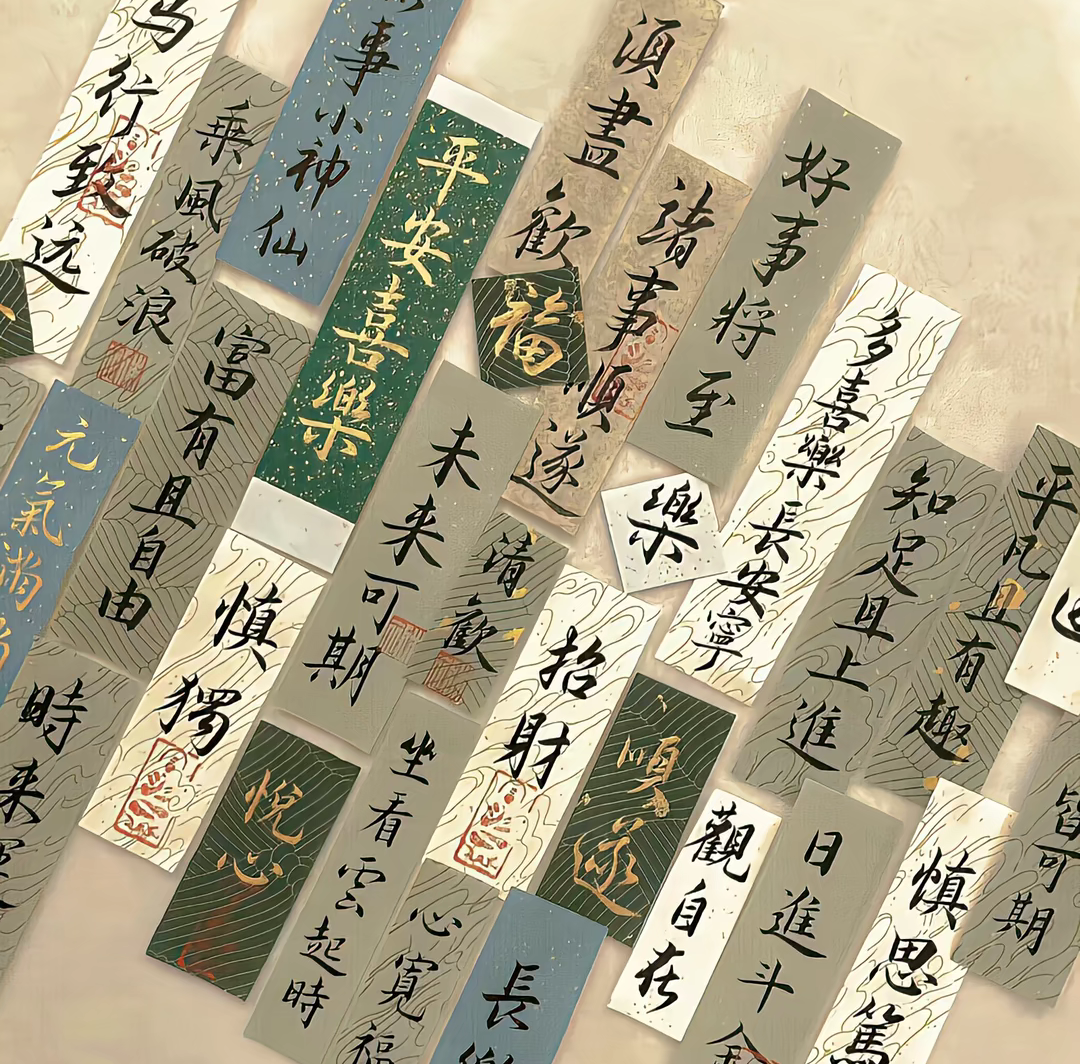 行致远
乘風破浪
事小神仙
平安喜樂
須盡歡
福
諸事順遂
好事将至
多喜樂長安寧
樂
知足且上進
平凡且有趣
富有且自由
元氣满
未来可期
清歡
慎獨
招財
順遂
時来
悦心
坐看雲起時
心寬福
長樂
觀自在
日進斗金
慎思篤
皆可期